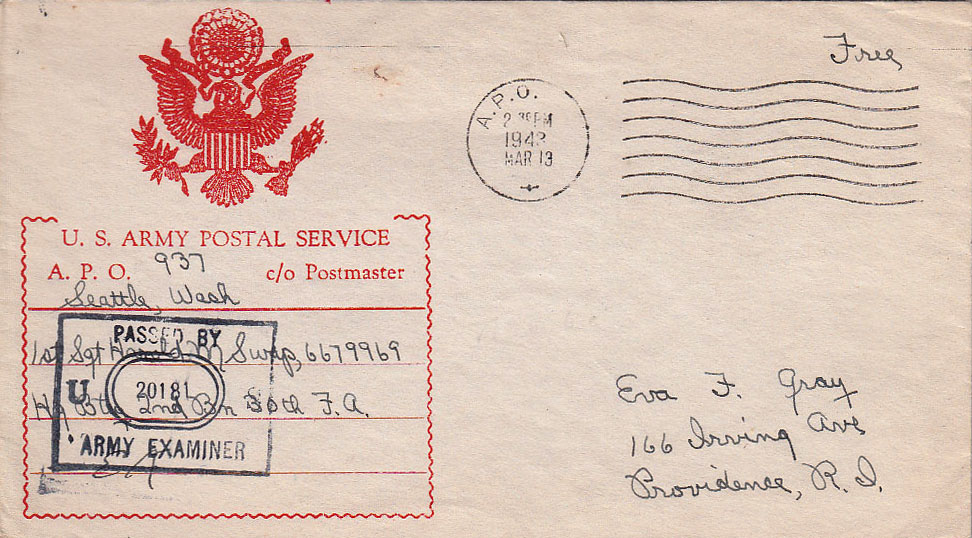 Free
A.P.O.
2 30 PM
1943
MAR 13
U. S. ARMY POSTAL SERVICE
A. P. O. 937 c/o Postmaster
Seattle, Wash
PASSED BY
1st Sgt Harold M Swap, 6679969
U. 20181
Hq Btry 2nd Bn 30th F. A.
ARMY EXAMINER
Eva F. Gray
166 Irving Ave
Providence, R. I.